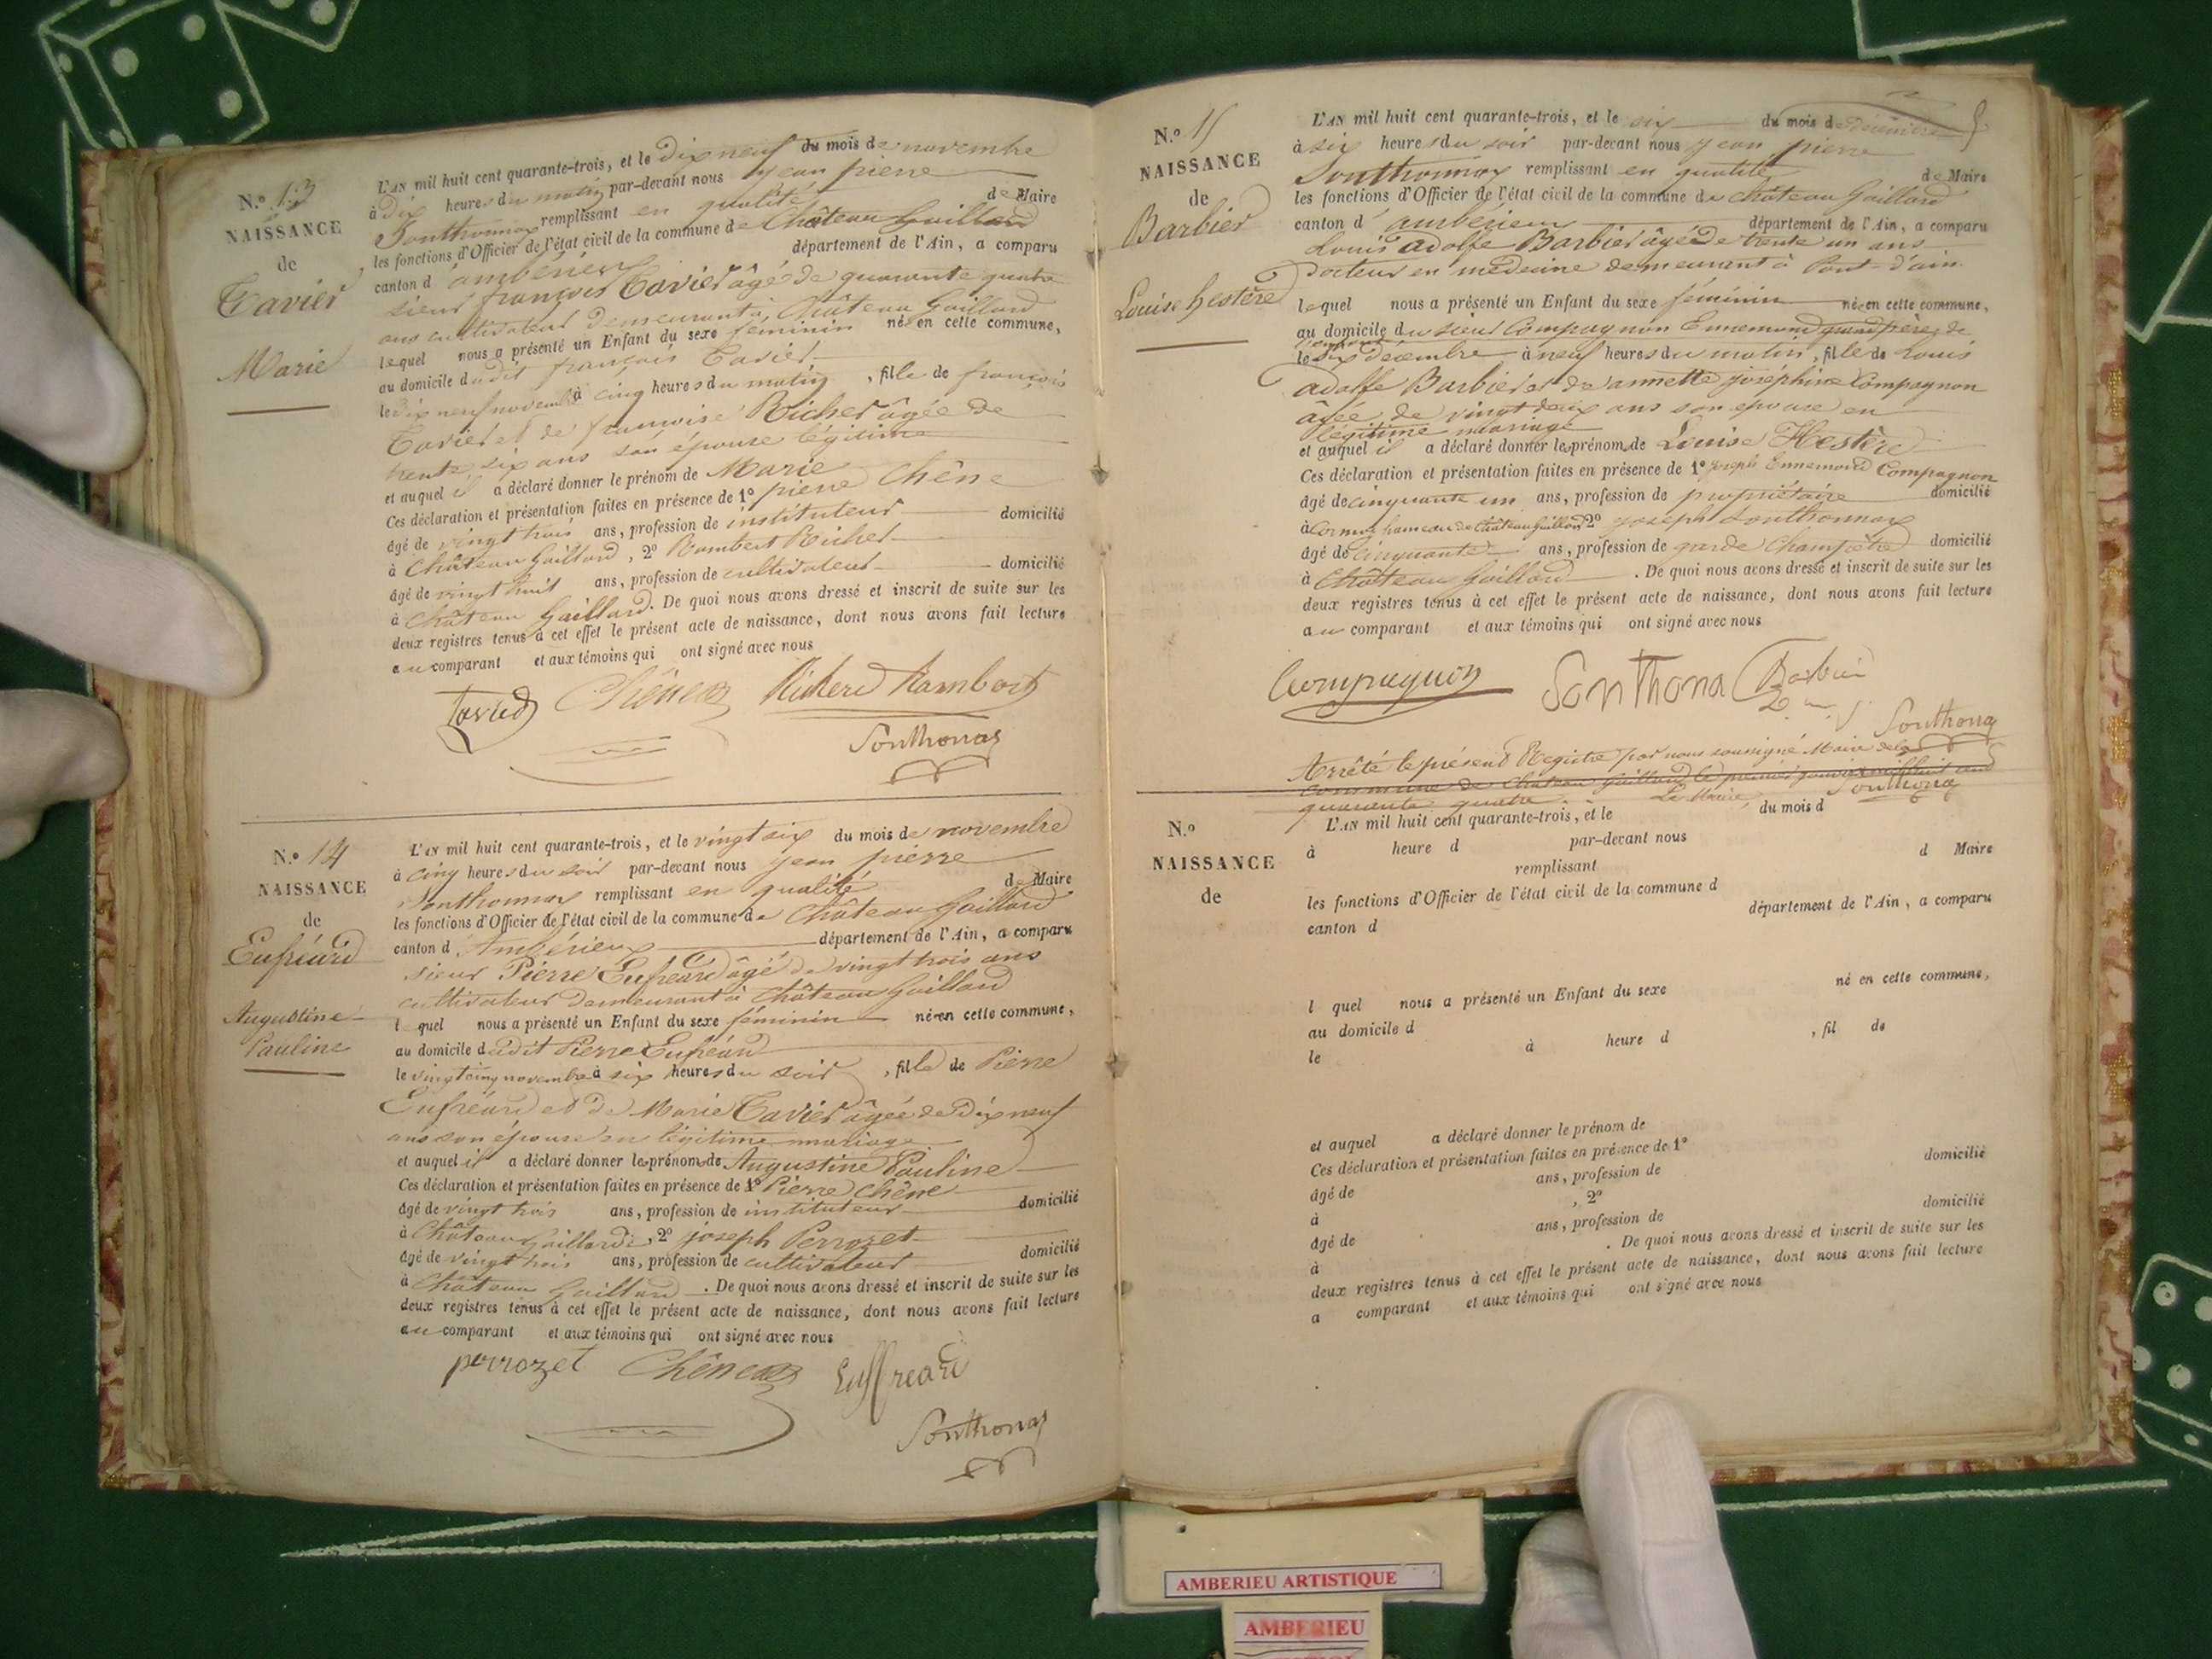 N.º 13
NAISSANCE
de
Tavier
Marie
L'AN mil huit cent quarante-trois, et le Dix neuf du mois de novembre
à Dix heures du matin par-devant nous jean pierre
Sonthonnax remplissant en qualité de Maire
les fonctions d'Officier de l'état civil de la commune de Château Gaillard
canton d'ambérieux département de l'Ain, a comparu
sieur françois Tavier âgé de quarante quatre
ans cultivateur demeurant à Château Gaillard
lequel nous a présenté un Enfant du sexe féminin née en cette commune,
au domicile dudit françois Tavier
le dix neuf novembre à cinq heures du matin, fille de françois
Tavier et de françoise Richer âgée de
trente six ans son épouse légitime
et auquel il a déclaré donner le prénom de Marie
Ces déclaration et présentation faites en présence de 1º pierre Chêne
âgé de vingt trois ans, profession de instituteur domicilié
à Château Gaillard, 2º Rambert Richer
âgé de vingt huit ans, profession de cultivateur domicilié
à Château Gaillard. De quoi nous avons dressé et inscrit de suite sur les
deux registres tenus à cet effet le présent acte de naissance, dont nous avons fait lecture
au comparant et aux témoins qui ont signé avec nous
Richerd Rambert
Sonthonax
N.º 14
NAISSANCE
de
Eufréard
Augustine
Pauline
L'AN mil huit cent quarante-trois, et le vingt six du mois de novembre
à cinq heures du soir par-devant nous jean pierre
Sonthonnax remplissant en qualité de Maire
les fonctions d'Officier de l'état civil de la commune de Château Gaillard
canton d'Ambérieux département de l'Ain, a comparu
sieur Pierre Eufréard âgé de vingt trois ans
cultivateur demeurant à Château Gaillard
l quel nous a présenté un Enfant du sexe féminin née en cette commune,
au domicile dudit Pierre Eufréard
le vingt cinq novembre à six heures du soir, fille de Pierre
Eufréard et de Marie Tavier âgée de dix neuf
ans son épouse en légitime mariage
et auquel il a déclaré donner les prénoms de Augustine Pauline
Ces déclaration et présentation faites en présence de 1º Pierre Chêne
âgé de vingt trois ans, profession de instituteur domicilié
à Château Gaillard, 2º joseph Perrozet
âgé de vingt trois ans, profession de cultivateur domicilié
à Château Gaillard. De quoi nous avons dressé et inscrit de suite sur les
deux registres tenus à cet effet le présent acte de naissance, dont nous avons fait lecture
au comparant et aux témoins qui ont signé avec nous
perrozet Euffreard
Sonthonax
N.º 15
NAISSANCE
de
Barbier
Louise hestère
L'AN mil huit cent quarante-trois, et le six du mois de décembre
à six heures du soir par-devant nous jean pierre
Sonthonnax remplissant en qualité de Maire
les fonctions d'Officier de l'état civil de la commune de Château Gaillard
canton d'ambérieux département de l'Ain, a comparu
Louis adolfe Barbier âgé de trente un ans
docteur en médecine demeurant à Pont-d'ain
lequel nous a présenté un Enfant du sexe féminin née en cette commune,
au domicile du sieur Compagnon Ennemond grand père de
l'enfant
le six décembre à neuf heures du matin, fille de Louis
adolfe Barbier et de annette joséphine Compagnon
âgée de vingt deux ans son épouse en
légitime mariage
et auquel il a déclaré donner les prénoms de Louise Hestère
Ces déclaration et présentation faites en présence de 1º joseph Ennemond Compagnon
âgé de cinquante un ans, profession de propriétaire domicilié
à Cormoz hameau de Château Gaillard 2º joseph Sonthonnax
âgé de cinquante ans, profession de garde Champêtre domicilié
à Château Gaillard. De quoi nous avons dressé et inscrit de suite sur les
deux registres tenus à cet effet le présent acte de naissance, dont nous avons fait lecture
au comparant et aux témoins qui ont signé avec nous
Compagnon Sonthona Barbier
Sonthonax
Arrêté le présent Registre par nous soussigné Maire de la
commune de Château Gaillard le premier janvier mil huit cent
quarante quatre. Le Maire, Sonthonax
N.º
NAISSANCE
de
L'AN mil huit cent quarante-trois, et le du mois d
à heure d par-devant nous
remplissant d Maire
les fonctions d'Officier de l'état civil de la commune d
canton d département de l'Ain, a comparu
l quel nous a présenté un Enfant du sexe né en cette commune,
au domicile d
le à heure d , fil de
et auquel a déclaré donner le prénom de
Ces déclaration et présentation faites en présence de 1º
âgé de ans, profession de domicilié
à , 2º
âgé de ans, profession de domicilié
à . De quoi nous avons dressé et inscrit de suite sur les
deux registres tenus à cet effet le présent acte de naissance, dont nous avons fait lecture
a comparant et aux témoins qui ont signé avec nous
AMBERIEU ARTISTIQUE
AMBERIEU